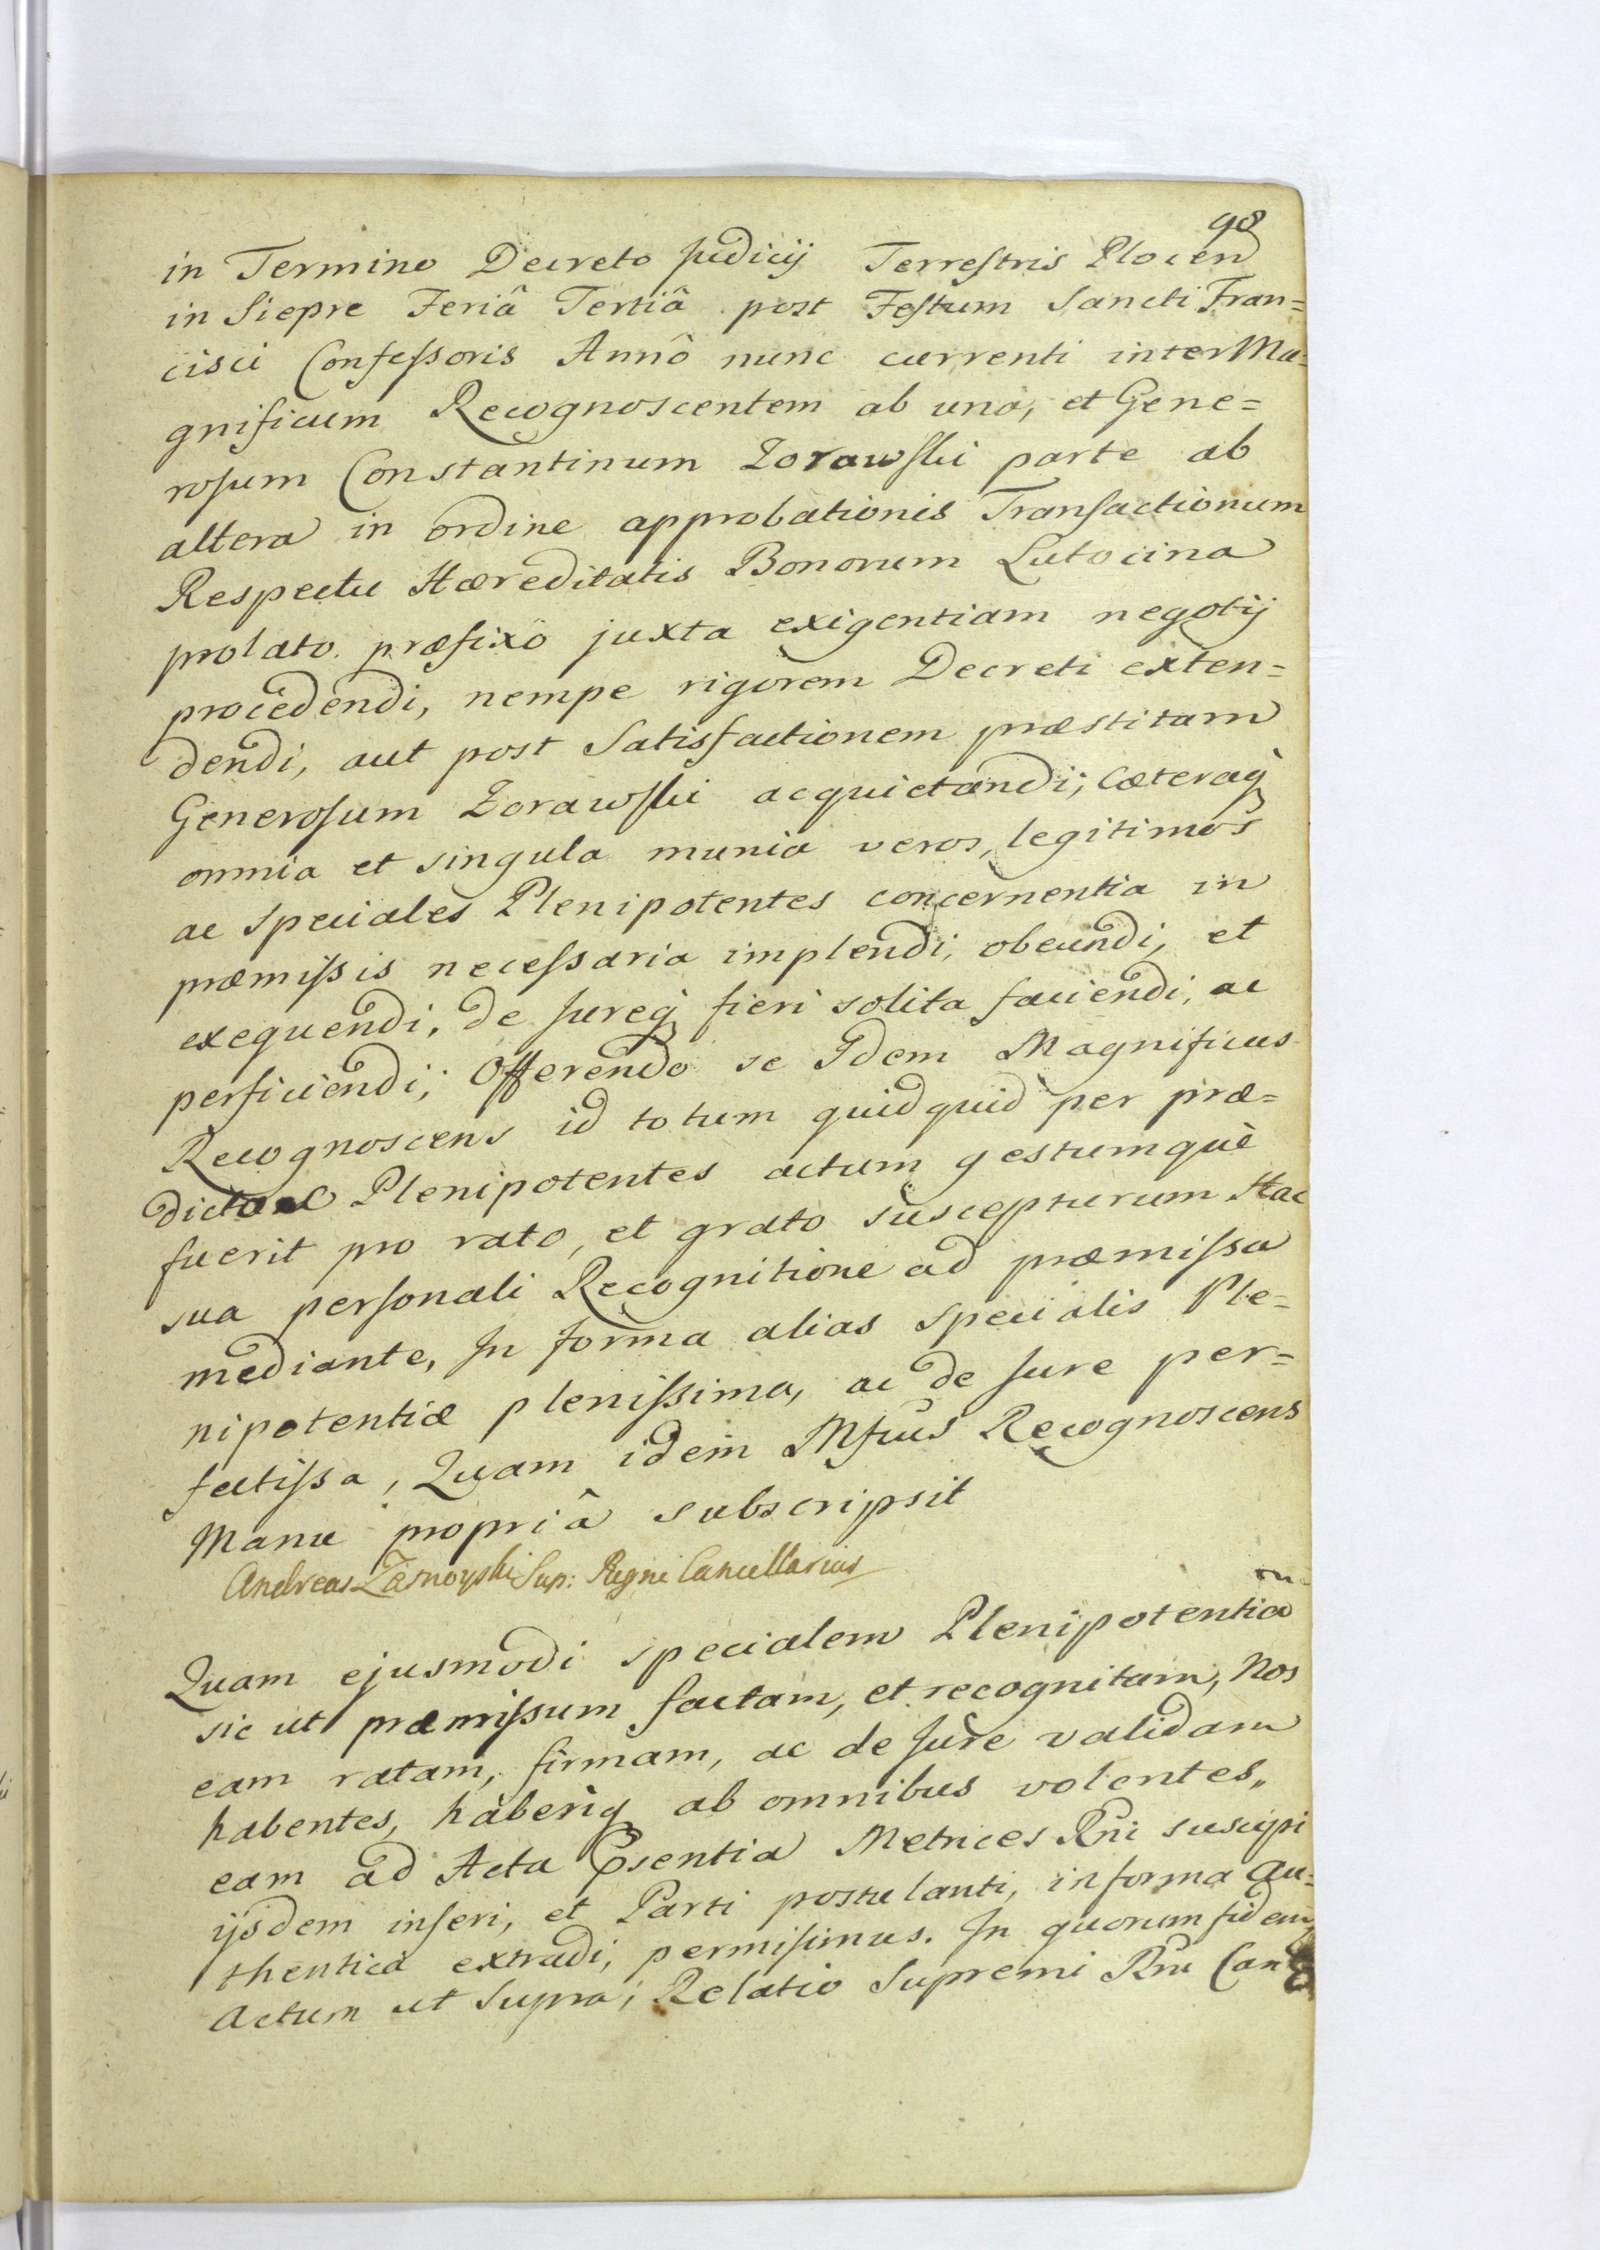 98
in Termino Decreto Judicij Terrestris Plocen
in Siepre Feriâ Tertiâ post Festum Sancti Fran=
cisci Confessoris Annô nunc currenti inter Ma=
gnificum Recognoscentem ab una, et Gene=
rosum Constantinum Zorawski parte ab
altera in ordine approbationis Transactionum
Respectu Hæreditatis Bonorum Lutocina
prolato præfixo juxta exigentiam negotij
procedendi, nempe rigorem Decreti exten=
dendi, aut post Satisfactionem præstitam
Generosum Zorawski acquietandi; Cæteraq
omnia et singula munia veros, legitimos
ac speciales Plenipotentes concernentia in
præmissis necessaria implendi, obeundi, et
exequendi, de Jureq fieri solita faciendi, ac
perficiendi; Offerendo se Idem Magnificus
Recognoscens id totum quidquid per præ=
dictos Plenipotentes actum gestumquè
fuerit pro rato, et grato suscepturum Hac
sua personali Recognitione ad præmissa
mediante, In forma alias specialis Ple=
nipotentiæ plenissima, ac de Jure per=
fectissa, Quam idem Mfcus Recognoscens
Manu propriâ subscripsit
Andreas Zamoyski Sup: Regni Cancellarius
Quam ejusmodi specialem Plenipotentia
m
sic ut præmissum factam, et recognitam, Nos
eam ratam, firmam, ac de Jure validam
habentes, haberiq ab omnibus volentes,,
eam ad Acta Psentia Metrices Rni suscipi
ijsdem inseri, et Parti postulanti, in forma au=
thentica extradi, permisimus. In quorum fidem
Actum ut Supra; Relatio Supremi Rni Canc